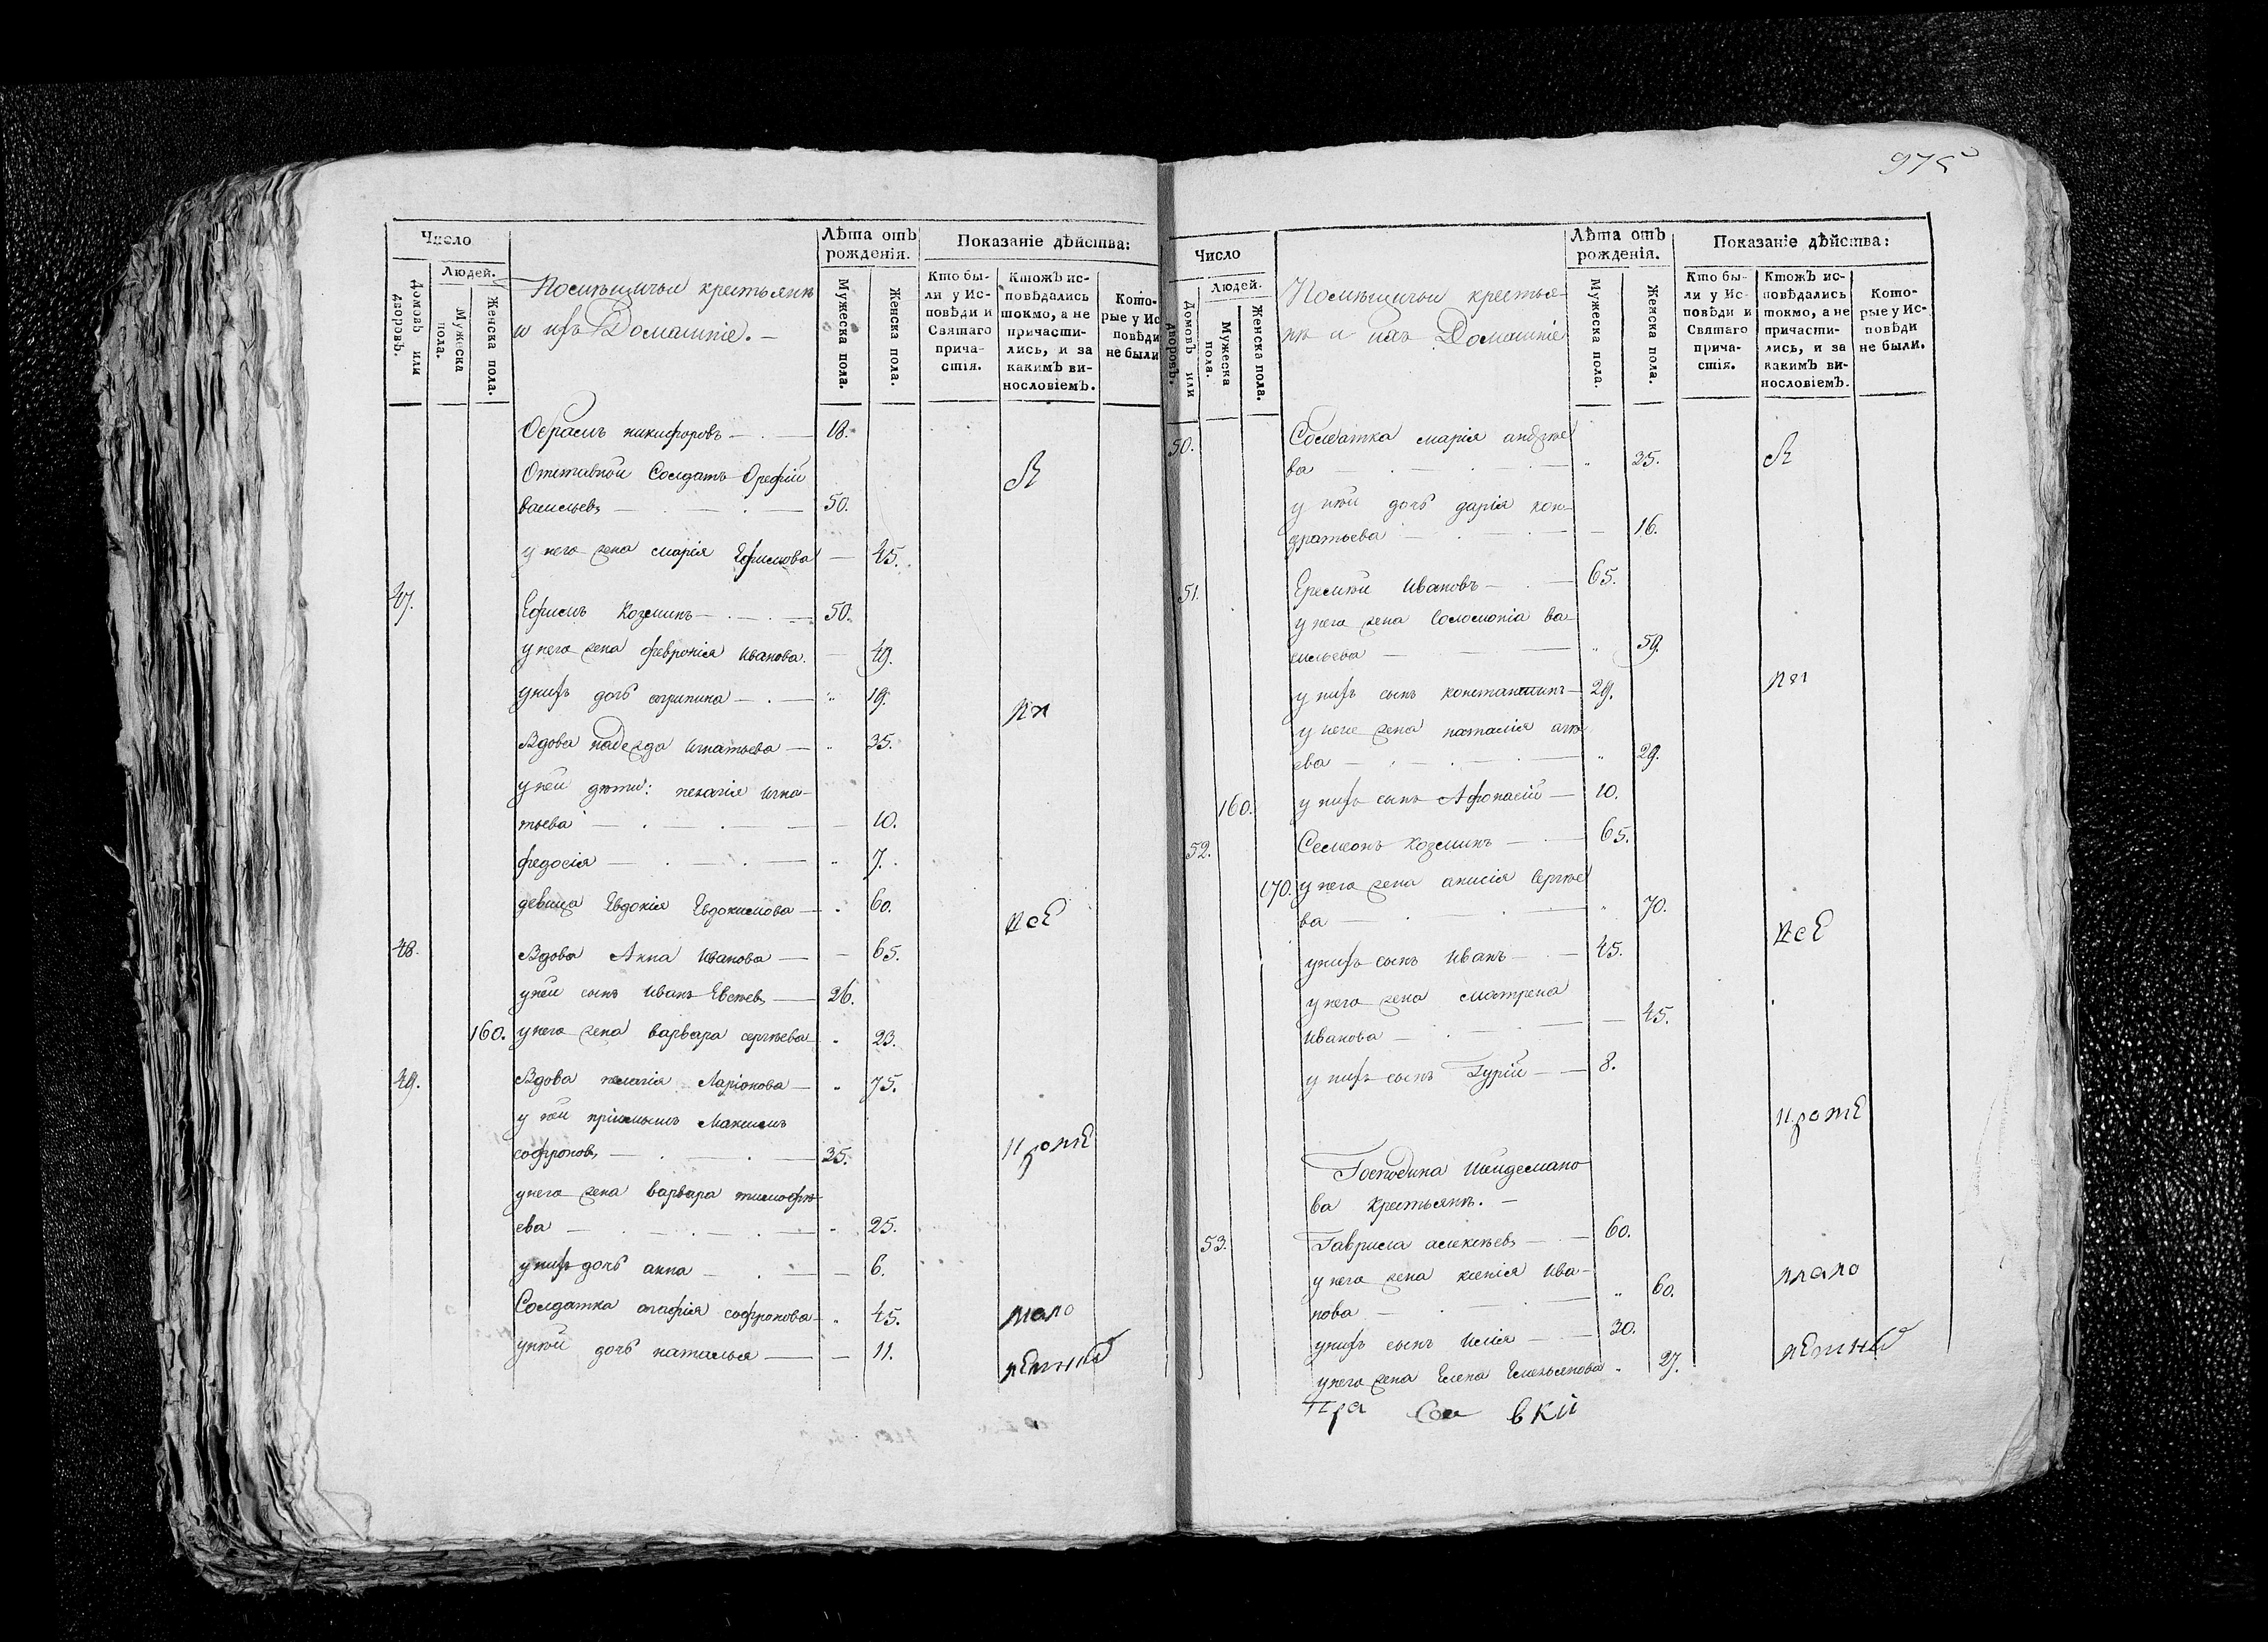 975
Число
Людей.
Домовъ или дворовъ.
Мужеска пола.
Женска пола.
Помѣщичьи крестьянѣ
и ихъ Домашніе. —
Лѣта отъ рожденія.
Мужеска пола.
Женска пола.
Показаніе дѣйства:
Кто были у Исповѣди и Святаго причастія.
Ктожъ исповѣдались токмо, а не причастились, и за какимъ винословіемъ.
Которые у Исповѣди не были
Обрамъ никифоровъ — 18.
Отставной Солдатъ Орефій
васильевъ — 50.
у него жена марія Ефимова — 45.
47. Ефимъ Козминъ — 50.
у него жена февронія иванова. — 49.
у нихъ дочь агрипина — 19.
Вдова надежда игнатьева — 35.
у ней дѣти: пелагія игна-
тьева — 10.
федосія — 7.
девица Евдокія Евдокимова — 60.
48. Вдова Анна иванова — 65.
у ней сынъ иванъ Евсѣевъ — 26.
160. у него жена варвара сергѣева — 23.
49. Вдова пелагія Ларіонова — 75.
у ней пріемышъ Максимъ
софроновъ — 35.
у него жена варвара тимофѣ-
ева — 25.
у нихъ дочь анна — 6.
Солдатка агафія софронова — 45.
у ней дочь наталья — 11.
всЕ
мало
лЕтны
Число
Людей.
Домовъ или дворовъ.
Мужеска пола.
Женска пола.
Помѣщичьи крестья-
нѣ и ихъ Домашніе
Лѣта отъ рожденія.
Мужеска пола.
Женска пола.
Показаніе дѣйства:
Кто были у Исповѣди и Святаго причастія.
Ктожъ исповѣдались токмо, а не причастились, и за какимъ винословіемъ.
Которые у Исповѣди не были.
50. Солдатка марія андрѣе
ва — 35.
у ней дочь дарія кон-
дратьева — 16.
51. Еремѣй Ивановъ — 65.
у него жена Соломонія ва-
сильева — 59.
у нихъ сынъ константинъ — 29.
у него жена наталія
ева — 29.
160. у нихъ сынъ Афонасій — 10.
52. Семіонъ Козминъ — 65.
170. у него жена анисія Сергѣе
ва — 70.
у нихъ сынъ иванъ — 45.
у него жена матрена
иванова — 45.
у нихъ сынъ Гурій — 8.
всЕ
Господина Шидемано
ва крестьянѣ. —
53. Гаврила алексѣевъ — 60.
у него жена ксенія ива-
нова — 60.
у нихъ сынъ илія — 30.
у него жена Елена Емельянова — 27.
мало
лЕтны